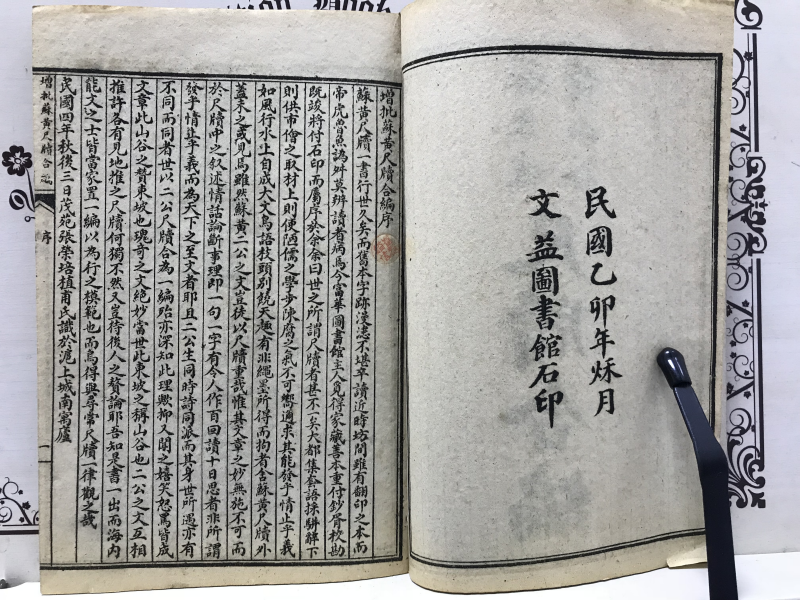 民國乙卯年烌月
文益圖書館石印
增批蘇黃尺牘合編序
蘇黃尺牘一書行世久矣而舊本字跡漫漶不堪卒讀近時坊間雖有翻印之本而
帝虎魯魚譌舛莫辨讀者病焉今富華圖書館主人覓得家藏善本重付鈔胥校勘
既竣將付石印而屬序於余余曰世之所謂尺牘者甚不一矣大都集套語採駢解下
則供市儈之取材上則便陋儒之學步陳腐之氣不可嚮邇求其能發乎情止乎義
如風行水上自成大文鳥語枝頭別饒天趣有非繩墨所得而拘者舍蘇黃尺牘外
蓋未之或見焉雖然蘇黃二公之文豈徒以尺牘重哉惟其文章之妙無施不可而
於尺牘中之叙述情話論斷事理即一句一字有令人作百回讀十日思者非所謂
發乎情止乎義而為天下之至文者耶且二公生同時詩同派而其身世所遇亦有
不同而同者世以二公尺牘合為一編殆亦深知此理歟抑又聞之嬉笑怒罵皆成
文章此山谷之贊東坡也瑰奇之文絕妙當世此東坡之稱山谷也二公之文互相
推許各有見地推之尺牘何獨不然又豈待後人之贅論耶吾知是書一出而海內
能文之士皆當家置一編以為行之模範也而烏得與尋常尺牘一律觀之哉
民國四年秋後三日茂苑張榮培植甫氏識於滬上城南寓廬
增批蘇黃尺牘合編
序
一